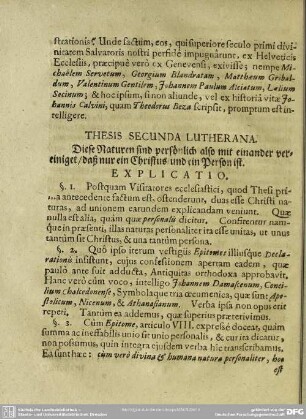 strationis? Unde factum, eos, qui superiore seculo primi divi-
nitatem Salvatoris nostri perfidè impugnârunt, ex Helveticis
Ecclesiis, præcipuè verò ex Genevensi, exivisse; nempe Mi-
chaëlem Servetum, Georgium Blandratam, Mattheum Gribal-
dum, Valentinum Gentilem, Johannem Paulum Alciatum, Lælium
Socinum; & hoc ipsum, si non aliunde, vel ex historiâ vitæ Jo-
hannis Calvini, quam Theodorus Beza scripsit, promptum est in-
telligere.
THESIS SECUNDA LUTHERANA.
Diese Naturen sind persönlich also mit einander ver-
einiget / daß nur ein Christus und ein Person ist.
EXPLICATIO.
§. 1. Postquam Visitatores ecclesiastici, quod Thesi pri-
ma antecedente factum est, ostenderunt, duas esse Christi na-
turas, ad unionem earundem explicandam veniunt. Quæ
nulla est alia, quàm quæ personalis dicitur. Consitentur namq;
in præsenti, illas naturas personaliter ita esse unitas, ut unus
tantùm sit Christus, & una tantùm persona.
§. 2. Quò ipso iterum vestigiis Epitomes illiusque Decla-
rationis insistunt, cujus confessionem apertam eadem, quæ
paulò ante fuit adducta, Antiquitas orthodoxa approbavit.
Hanc verò cùm voce, intelligo Johannem Damascenum, Concy-
lium chalcedonense, Symbolaque tria œcumenica, quæ sunt Apo-
stolicum, Nicenum, & Athanasianum. Verba ipsa non opus erit
reperi, Tantùm ea addemus, quæ superius præterivimus.
§. 3. Cùm Epitome, articulo VIII. expressè doceat, quàm
summa ac ineffabilis unio sit unio naturarum, de quâ dicitur,
non possumus, quin integra ejusdem verba hic transcribamus.
Ea sunt hæc: cùm verò divina & humana natura personaliter, hoc
est